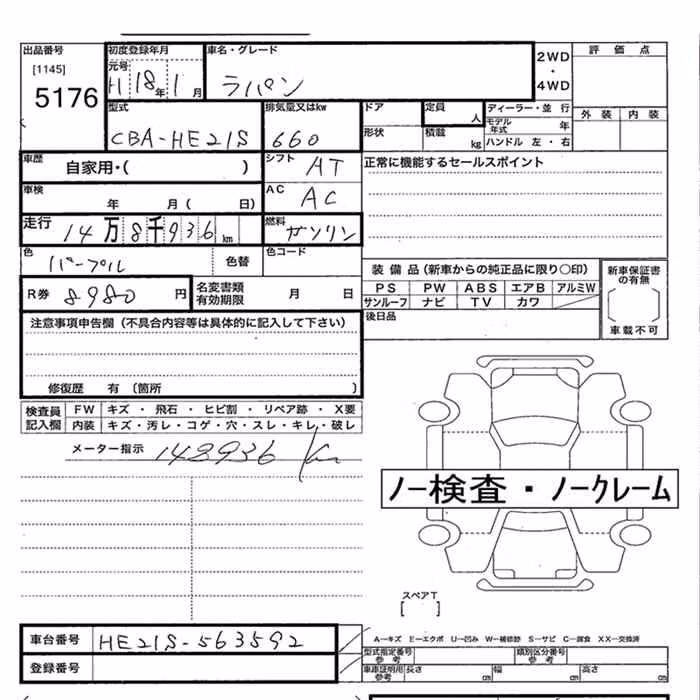 出品番号 初度登録年月 車名・グレード 2WD・4WD 評価点
[1145] 元号
5176 H 18年 1月 ラパン
型式 排気量又はkw ドア 定員 人 ディーラー・並行 外装 内装
CBA-HE21S 660 形状 積載 kg モデル年式 年
ハンドル 左・右
車歴 自家用・( ) シフト AT 正常に機能するセールスポイント
車検 年 月( 日) AC AC
走行 14万8千936km 燃料 ガソリン
色 パープル 色替 色コード
装備品(新車からの純正品に限り○印) 新車保証書の有無
R券 8980円 名変書類有効期限 月 日 PS PW ABS エアB アルミW
サンルーフ ナビ TV カワ 車載不可
注意事項申告欄(不具合内容等は具体的に記入して下さい) 後日品
修復歴 有(箇所 )
検査員 FW キズ・飛石・ヒビ割・リペア跡・X要
記入欄 内装 キズ・汚レ・コゲ・穴・スレ・キレ・破レ
メーター指示 148936 Km
ノー検査・ノークレーム
スペアT
[ ]
車台番号 HE21S-563592 A–キズ E–エクボ U–凹み W–補修跡 S–サビ C–腐食 XX–交換済
型式指定番号 参考 類別区分番号 参考
登録番号 車庫証明用 参考 長さ cm 幅 cm 高さ cm